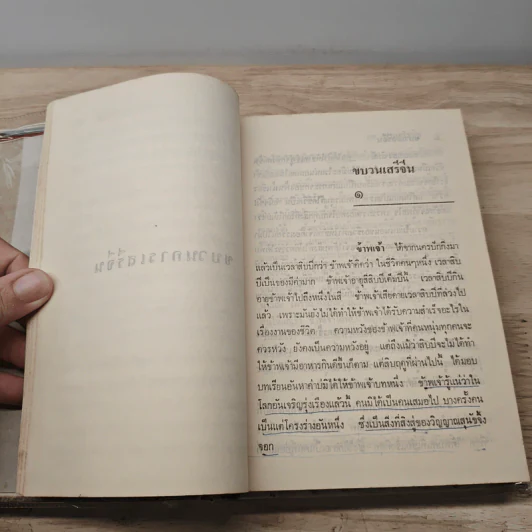 ขบวนเสรีจีน
๑
ข้าพเจ้า ได้จากนครปักกิ่งมา
แล้วเป็นเวลาสิบปีกว่า ข้าพเจ้าคิดว่า ในชีวิตคนๆหนึ่ง เวลาสิบ
ปีเป็นของมีค่ามาก ข้าพเจ้าอายุสี่สิบปีเศษปีนี้ เวลาสิบปีกิน
อายุข้าพเจ้าไปถึงหนึ่งในสี่ ข้าพเจ้าเสียดายเวลาสิบปีที่ล่วงไป
แล้ว เพราะมันยังไม่ได้ทำให้ข้าพเจ้าได้รับความสำเร็จอะไรใน
เรื่องงานของชีวิต ความหวังของข้าพเจ้าที่คนหนุ่มทุกคนจะ
ควรหวัง ยังคงเป็นความหวังอยู่ แต่ถึงแม้ว่าสิบปีจะไม่ได้ทำ
ให้ข้าพเจ้ามีอาหารกินดีขึ้นก็ตาม แต่สิบฤดูที่ผ่านไปนี้ ได้มอบ
บทเรียนอันหาค่าบ่มิได้ให้ข้าพเจ้าบทหนึ่ง ข้าพเจ้ารู้แน่ว่าใน
โลกอันเจริญรุ่งเรืองแล้วนี้ คนมิได้เป็นคนเสมอไป บางครั้งคน
เป็นแต่โครงร่างอันหนึ่ง ซึ่งเป็นสิ่งที่สิงสู่ของวิญญาณสุนัขจิ้ง
จอก